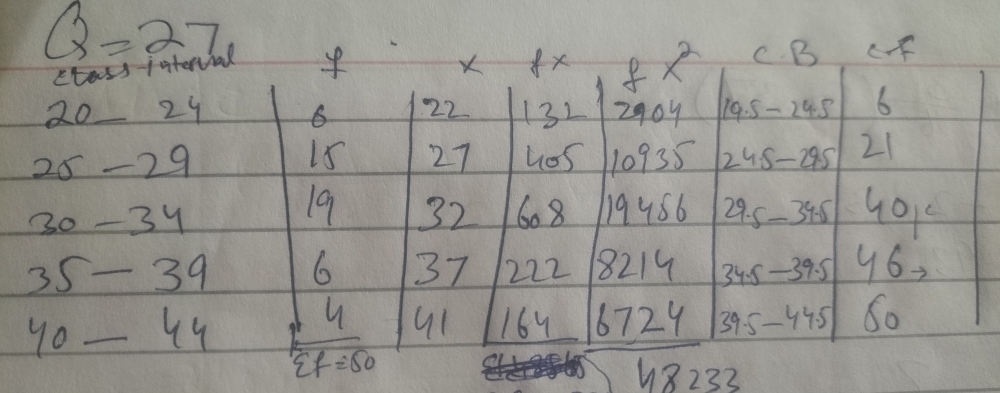 Q = 27
class interval f x fx fx² C.B C.F
20 – 24 6 22 132 2904 19.5 – 24.5 6
25 – 29 15 27 405 10935 24.5 – 29.5 21
30 – 34 19 32 608 19456 29.5 – 34.5 40
35 – 39 6 37 222 8214 34.5 – 39.5 46
40 – 44 4 41 164 6724 39.5 – 44.5 50
Σf = 50 48233